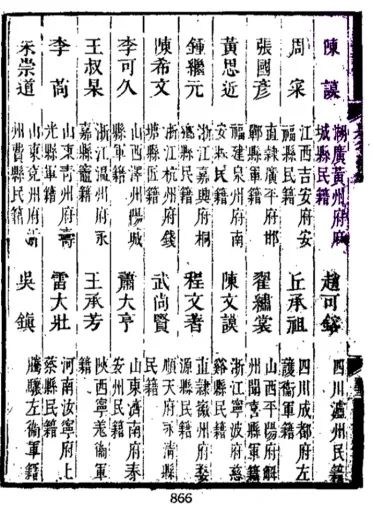 陳謨 湖廣黃州府麻城縣民籍 趙可 四川瀘州民籍
周寀 江西吉安府安福縣民籍 丘承祖 四川成都府左護衞軍籍
張國彥 直隸廣平府邯鄲縣軍籍 翟繡裳 山西平陽府解州聞喜縣軍籍
黃思近 福建泉州府南安縣民籍 陳文謨 浙江寧波府慈谿縣民籍
鍾繼元 浙江嘉興府桐鄉縣民籍 程文著 直隸徽州府婺源縣民籍
陳希文 浙江杭州府錢塘縣匠籍 武尚賢 順天府永清縣民籍
李可久 山西澤州陽城縣軍籍 蕭大亨 山東濟南府泰安州民籍
王叔杲 浙江溫州府永嘉縣竈籍 王承芳 陝西寧羌衞軍籍
李 山東青州府壽光縣軍籍 雷大壯 河南汝寧府上蔡縣民籍
朱崇道 山東兗州府沂州費縣民籍 吳鎮 騰驤左衞軍籍
866